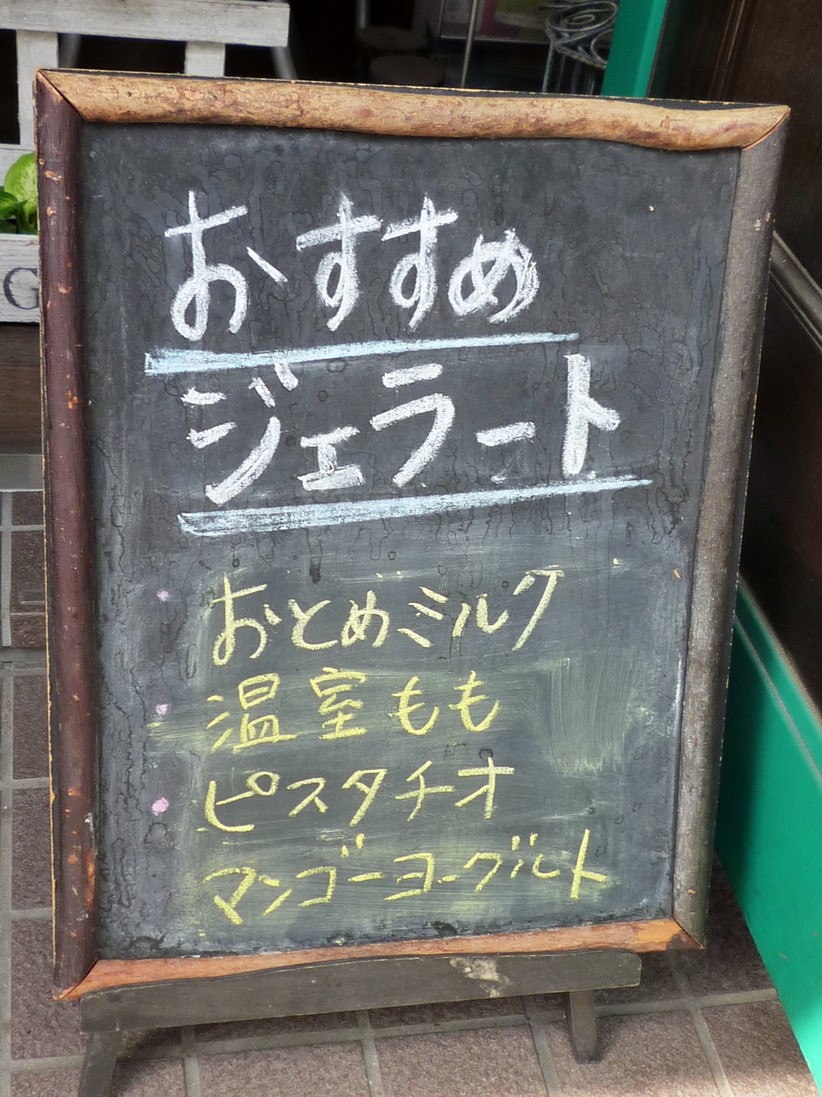 おすすめ
ジェラート
・おとめミルク
・温室もも
・ピスタチオ
マンゴーヨーグルト
G